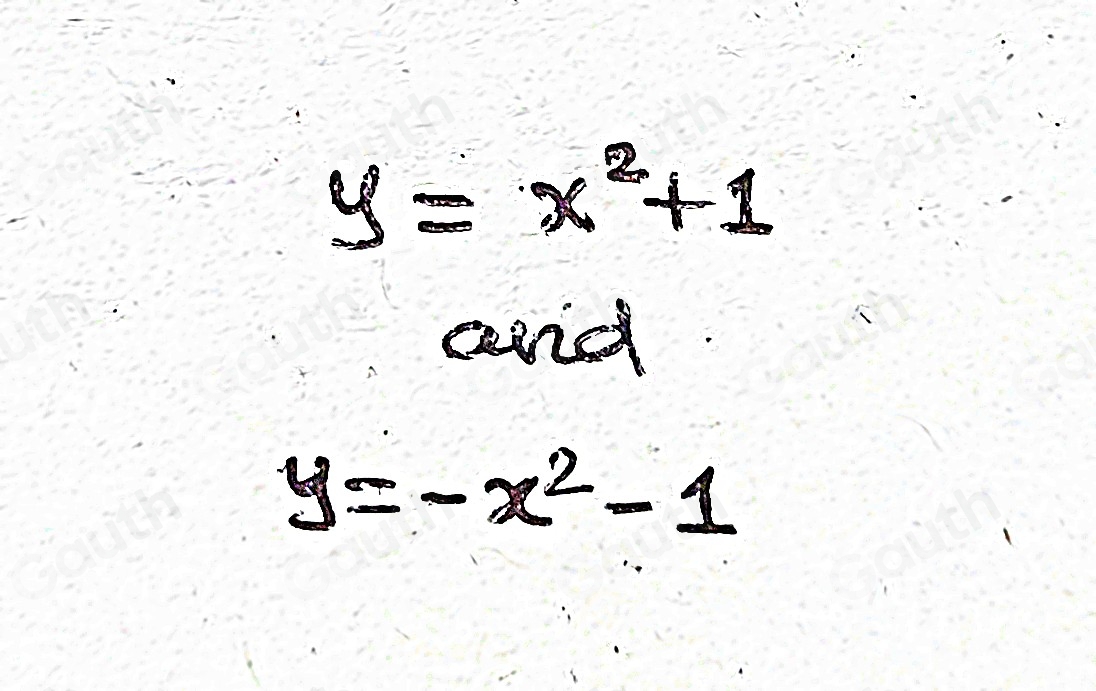 y = x²+1
and
y=-x²-1